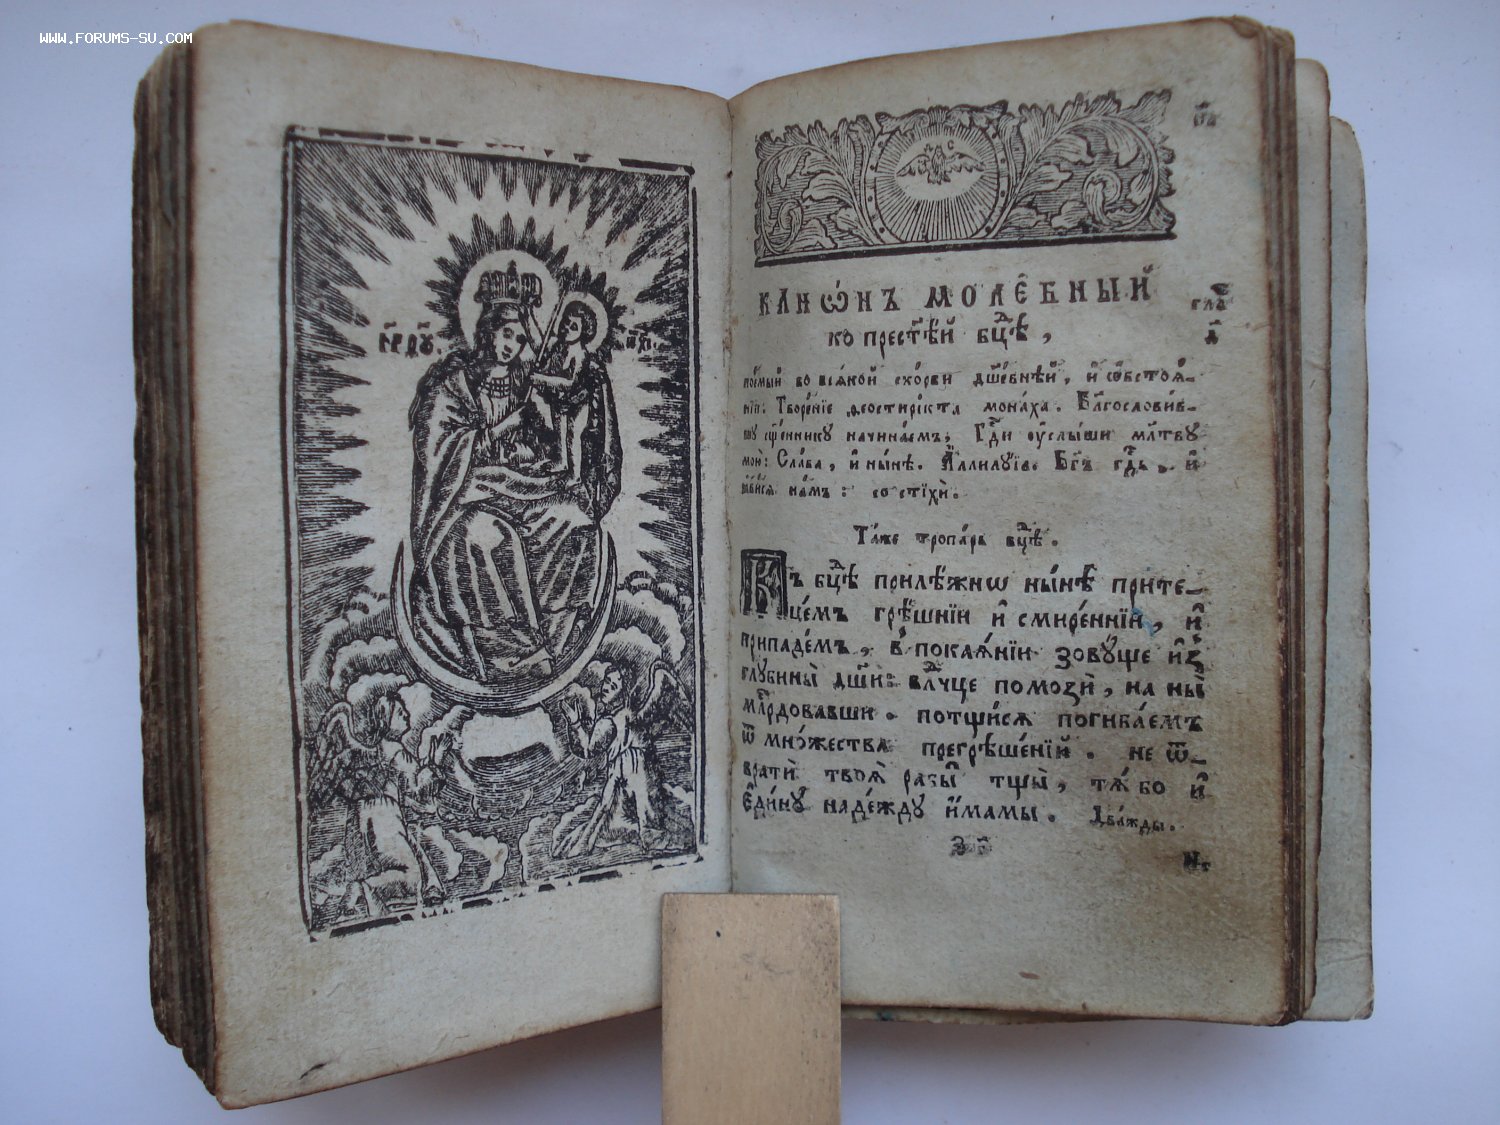 WWW.FORUMS-SU.COM
КАНѠ́НЪ МОЛЕ́БНЫЙ
ко прест҃ѣ́й бц҃ѣ,
гла́
пое́мый во вся́кой ско́рби дш҃е́внѣй, и҆ ѡ҆бстоѧ́-
нїи: Творе́нїе ѳеостирі́кта мона́ха. Бл҃гослови́в-
шу сщ҃е́ннику начина́емъ, Гд҃и ᲂу҆слы́ши мл҃тву
мою̀: Сла́ва, и҆ ны́нѣ. А҆ллилу́їа. Бг҃ъ гд҃ь, и҆
ꙗ҆ви́сѧ на́мъ: со стїхѝ.
Та́же тропа́рь бц҃ѣ.
Къ бц҃ѣ прилѣ́жнѡ ны́нѣ прите-
це́мъ грѣ́шнїи и҆ смире́ннїи, и҆
припаде́мъ, в̾ покаѧ́нїи зову́ще и҆з̾
глубины̀ дш҃и: влⷣчце помозѝ, на ны̀
млⷭ҇рдовавши. потщи́сѧ погиба́емъ
ѿ мно́жества прегрѣше́нїй. не ѿ-
вратѝ твоѧ̀ рабы̀ тщы̀, тѧ́ бо и҆
є҆ди́ну наде́жду и҆́мамы. Два́жды.